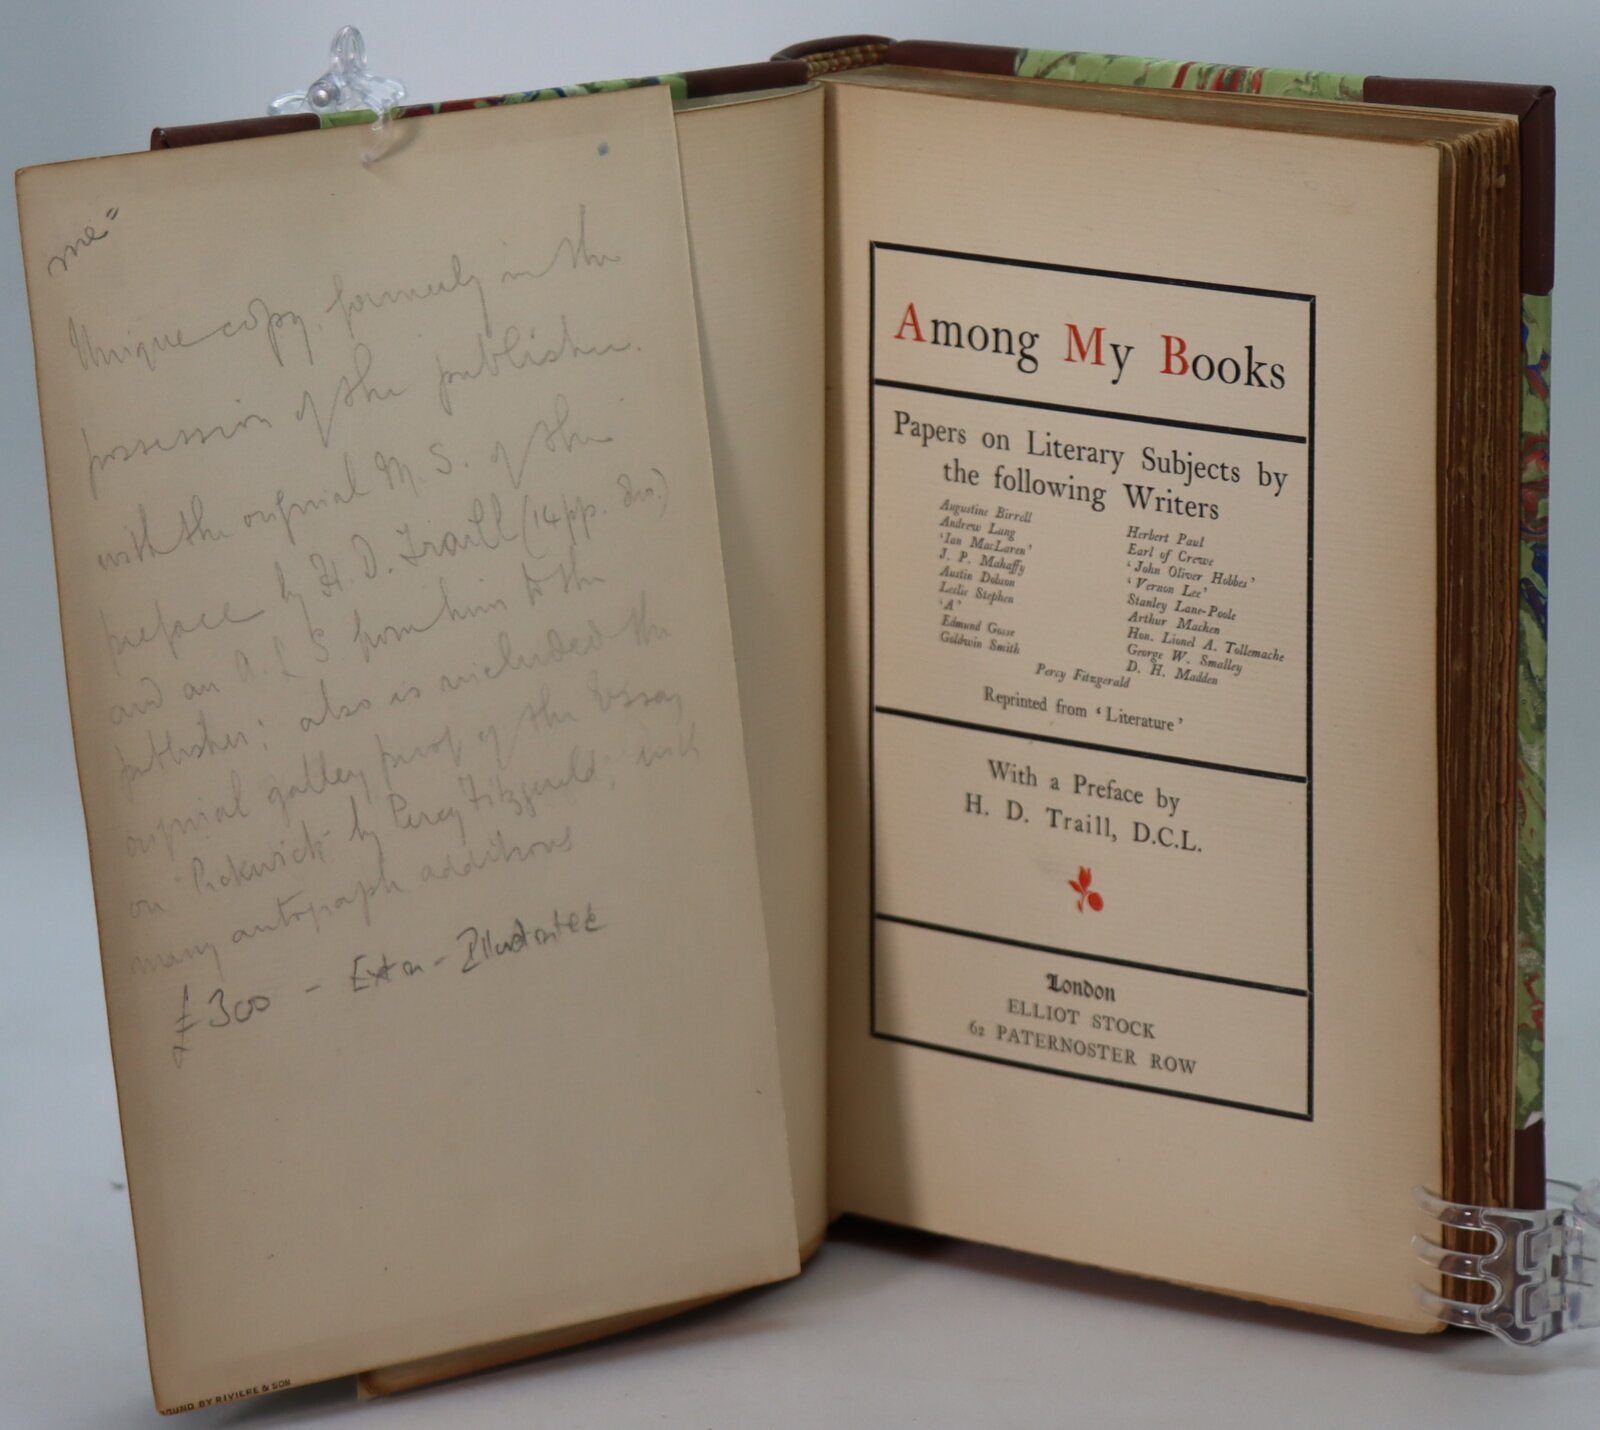 me"
Unique copy, formerly in the
possession of the publisher.
with the original M.S. of the
preface by H. D. Traill (14 pp. 8vo.)
and an A. L. S. from him to the
publisher; also is included the
original galley proof of the Essay
on Pickwick by Percy Fitzgerald, with
many autograph additions
£300 - Extra-Illustrated
BOUND BY RIVIERE & SON
Among My Books
Papers on Literary Subjects by
the following Writers
Augustine Birrell
Andrew Lang
'Ian MacLaren'
J. P. Mahaffy
Austin Dobson
Leslie Stephen
'A'
Edmund Gosse
Goldwin Smith
Herbert Paul
Earl of Crewe
'John Oliver Hobbes'
'Vernon Lee'
Stanley Lane-Poole
Arthur Machen
Hon. Lionel A. Tollemache
George W. Smalley
D. H. Madden
Percy Fitzgerald
Reprinted from 'Literature'
With a Preface by
H. D. Traill, D.C.L.
London
ELLIOT STOCK
62 PATERNOSTER ROW